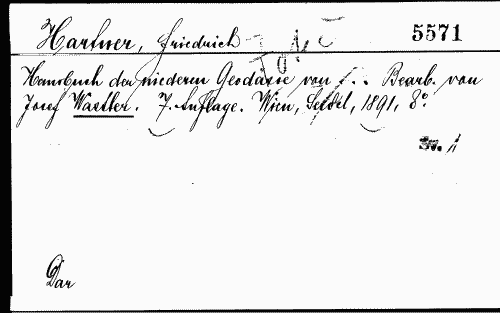 Hartner, Friedrich 5571
Handbuch der niederen Geodäsie von F. . Bearb. von
Josef Wastler. 7. Auflage. Wien, Seidel, 1891, 8°.
Dar